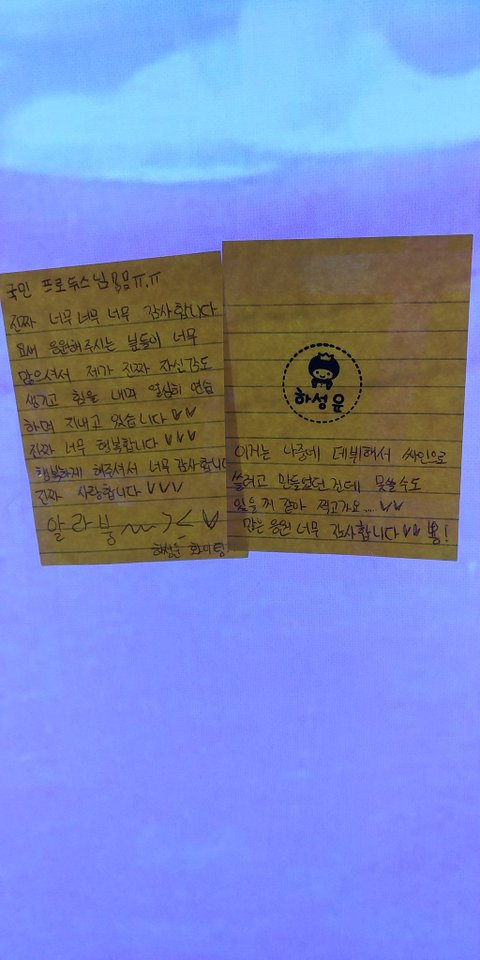 국민 프로듀스님들 ㅠ.ㅠ
진짜 너무 너무 너무 감사합니다
요새 응원해주시는 분들이 너무
많으셔서 제가 진짜 자신감도
생기고 힘을 내며 열심히 연습
하며 지내고 있습니다 ♡♡
진짜 너무 행복합니다 ♡♡♡
행복하게 해주셔서 너무 감사합니다
진짜 사랑합니다 ♡♡♡
알라붕~~><♡
하성운 화이팅
하성운
이거는 나중에 데뷔해서 싸인으로
쓸려고 만들었던 건데 못쓸수도
있을꺼 같아 적고가요.... ♡♡
많은 응원 너무 감사합니다 ♡♡ 뿅!